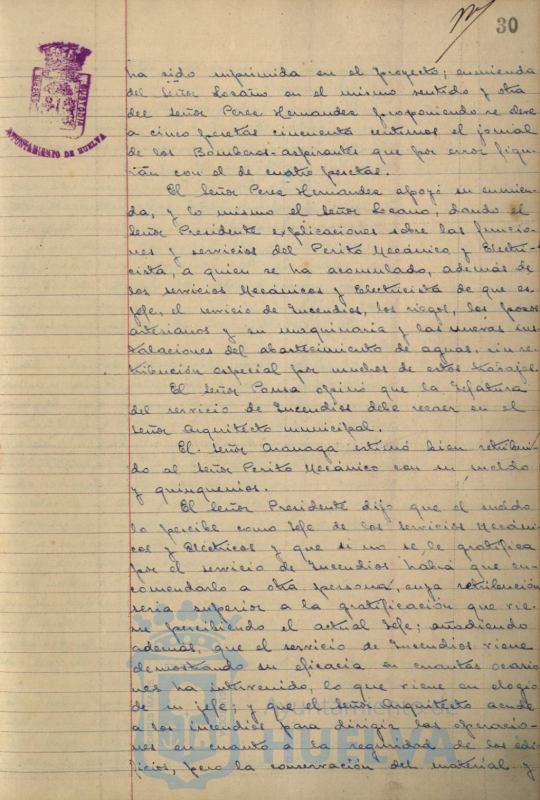 30
AYUNTAMIENTO DE HUELVA
ha sido suprimida en el proyecto; enmienda
del Señor Lozano en el mismo sentido y otra
del Señor Perez Hernandez proponiendo se eleve
a cinco pesetas cincuenta centimos el jornal
de los Bomberos-aspirantes que por error figu-
ran con el de cuatro pesetas.
El Señor Perez Hernandez apoyó su enmien-
da, y lo mismo el Señor Lozano, dando el
Señor Presidente explicaciones sobre las funcio-
nes y servicios del Perito Mecánico y Electri-
cista, a quien se ha acumulado, además de
los servicios Mecánicos y Electricista de que es
Jefe, el servicio de Incendios, los riegos, los pozos
artesianos y su maquinaria y las nuevas ins-
talaciones del abastecimiento de aguas, sin re-
tribución especial por muchos de estos trabajos.
El Señor Ponsa opinó que la Jefatura
del servicio de Incendios debe recaer en el
Señor Arquitecto municipal.
El Señor Aranaga estimó bien retribui-
do al Señor Perito Mecánico con su sueldo
y quinquenios.
El Señor Presidente dijo que el sueldo
lo percibe como Jefe de los servicios Mecáni-
cos y Eléctricos y que si no se le gratifica
por el servicio de Incendios habrá que en-
comendarlo a otra persona, cuya retribución
seria superior a la gratificación que vie-
ne percibiendo el actual Jefe; añadiendo
además, que el servicio de Incendios viene
demostrando su eficacia en cuantas ocasio-
nes ha intervenido, lo que viene en elogio
de su jefe; y que el Señor Arquitecto acude
a los incendios para dirigir las operacio-
nes en cuanto a la seguridad de los edi-
ficios, pero la conservación del material y
Ayuntamiento de
HUELVA